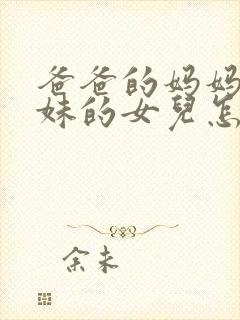 爸爸的妈妈
妹的女兒怎
余未